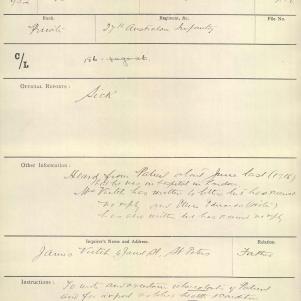 Rank.
Regiment, &c.
File No.
Private
27th Australian Infantry
C/L
1st August
OFFICIAL REPORTS:
Sick
Other Information:
Heard from Patient about June last (1916)
that he was in hospital in London
Mr Veitch has written letters but has received
no reply and
has also written but has received no reply
Inquirer's Name and Address.
Relation.
James Veitch St, St Peters
Father
Instructions:
To write and ascertain whereabouts of Patient
and for report